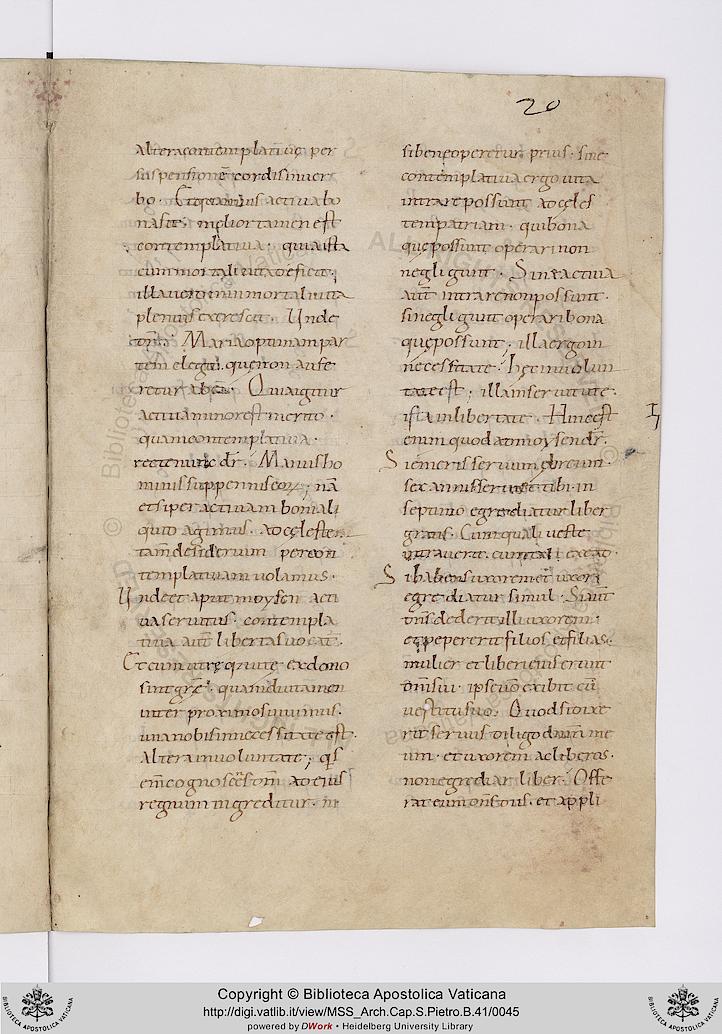 20
Altera contemplatiuę per
suspensionē cordis in uer
bo. Et quamuis actiua bo
na sit. melior tamen est
contemplatiua. quia ista
cum mortali uita deficit.
illa uero in inmortali uita
plenius excrescit. Unde
Maria optimam par
tem elegit. quę non aufe
retur ab ea. Quia igitur
actiua minor est merito.
quam contemplatiua.
recte nunc dr̄. Manus ho
minis sub pennis eoꝝ; nā
etsi per actiuam boni ali
quid agimus. ad cęlestem
tam̄ desiderium per con
templatiuam uolamus.
Unde et aput moysen acti
ua seruitus. contempla
tiua aut̄ libertas uocat̄.
Et cum utręq; uitę ex dono
sint grę. quamdiu tamen
inter proximos uiuimus.
una nobis in necessitate est.
Altera in uoluntate; q̄s
em̄ cognoscēs dm̄ ad eius
regnum ingreditur. ni
si bene operetur prius. sine
contemplatiua ergo uita
intrare possunt ad cęles
tem patriam. qui bona
quę possunt operari non
negligunt. Sine actiua
aut̄ intrare non possunt.
si negligunt operari bona
quę possunt. illa ergo in
necessitate. hęc in uolun
tate est; illa in seruitute.
ista in libertate. Hinc est
enim quod ad moysen dr̄.
Si emeris seruum ebreum.
sex annis seruiet tibi. in
septimo egrediatur liber
gratis. Cum quali ueste
intrauerit. cum tali exeat.
Si habens uxorem et uxor
egrediatur simul. Si aut̄
dn̄s dederit illi uxorem.
et pepererit filios et filias.
mulier et liberi eius erunt
dn̄i sui. ipse uō exibit cū
uestitu suo. Quod si dixe
rit seruus diligo dn̄m me
um. et uxorem ac liberos.
non egrediar liber. Offe
rat eum dn̄s diis. et appli
Copyright © Biblioteca Apostolica Vaticana
http://digi.vatlib.it/view/MSS_Arch.Cap.S.Pietro.B.41/0045
powered by DWork • Heidelberg University Library
BIBLIOTECA APOSTOLICA VATICANA
BIBLIOTECA APOSTOLICA VATICANA